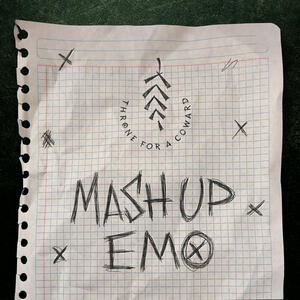 THRONE FOR A COWARD
MASHUP
EMO